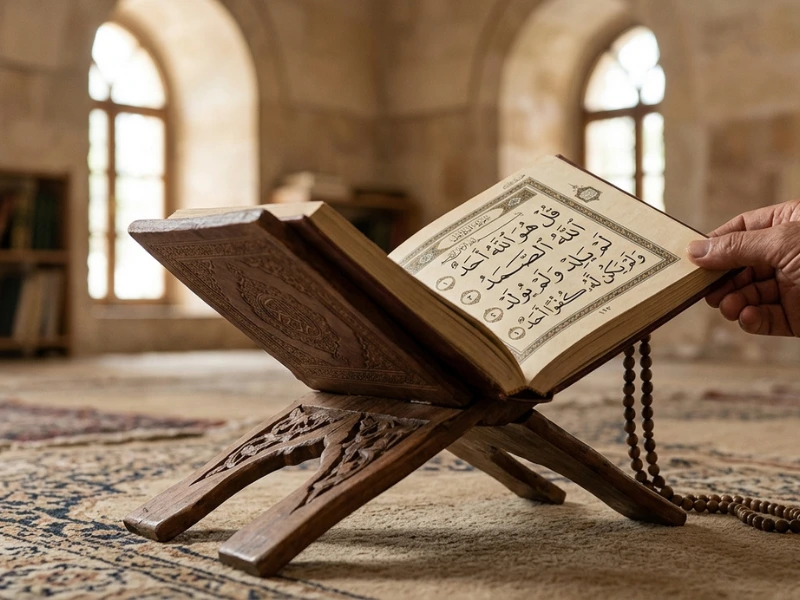 قُلْ هُوَ ٱللَّهُ أَحَدٌ
ٱللَّهُ ٱلصَّمَدُ
لَمْ يَلِدْ وَلَمْ يُولَدْ
وَلَمْ يَكُنْ لَهُ كُفُوًا أَحَدٌ